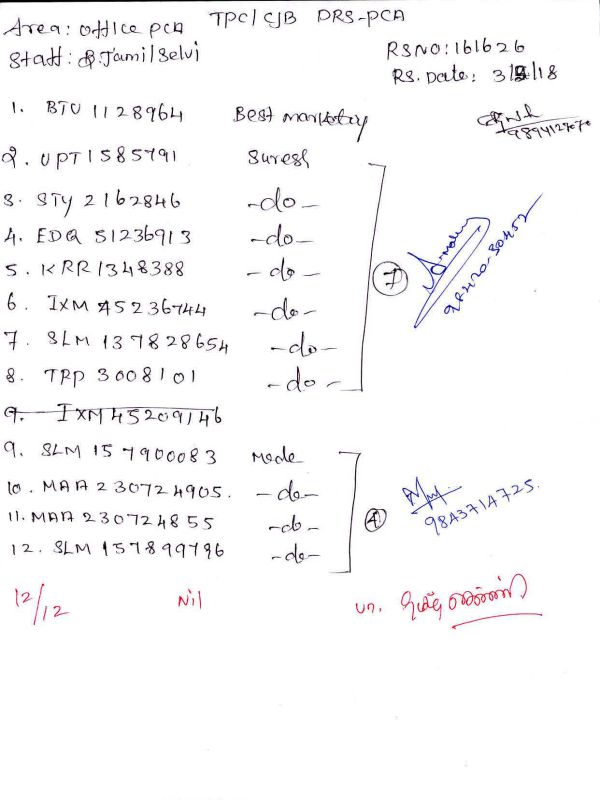 TPC/CJB DRS-PCA
Area: Office PCA
Staff: B.Tamil Selvi
RSNO: 161626
RS. Date: 3/5/18
1. BTU 1128964 Best marketing
2. UPT 1585791 Suresh
3. STY 2162846 -do-
4. EDQ 51236913 -do-
5. KRR 1348388 -do-
6. IXM 45236744 -do-
7. SLM 137828654 -do-
8. TRP 3008101 -do-
7
98420-30452
9. IXM 45209146
9. SLM 157900083 Mode
10. MAA 230724905. -do-
11. MAA 230724855 -do-
12. SLM 157899796 -do-
4
9843714725.
12/12 Nil